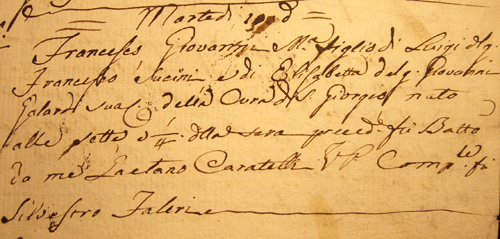 Martedi
Francesco Giovanni Ma figlio di Luigi del q
Francesco Sucini e di Elisabetta del q. Giovanni
Galardi sua C. della Cura di S. Giorgio nato
alle sette 1/4 della sera preced. fu Batto
da me Gaetano Caratelli VP Comp le fu
Silvestro Faleri